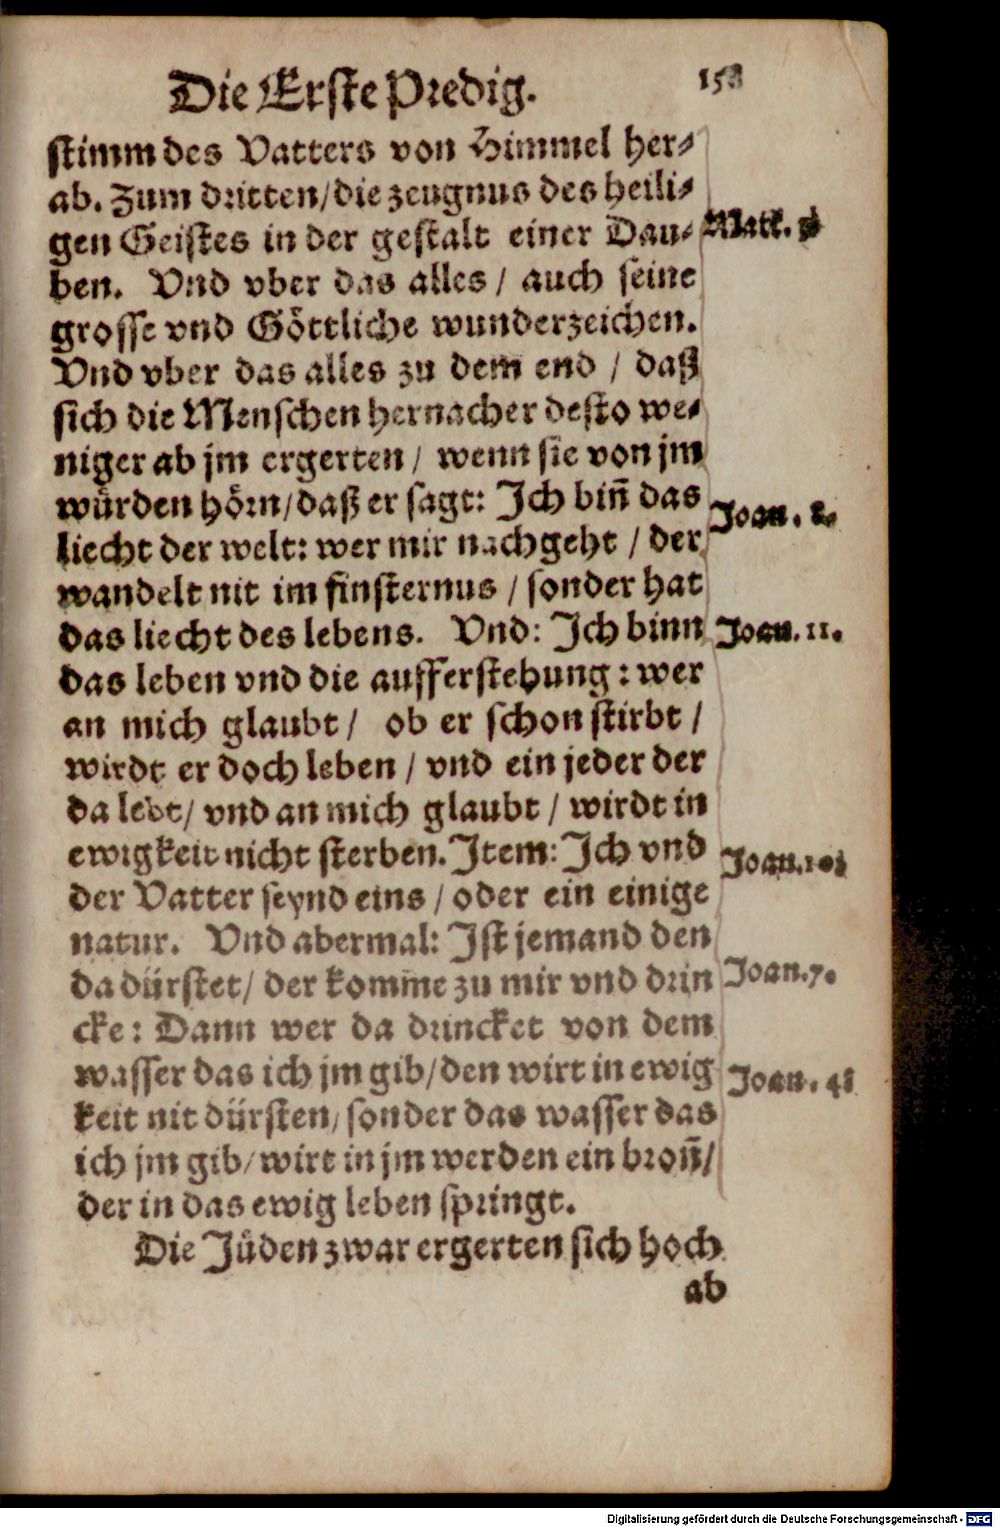 Die Erste Predig.
stimm des Vatters von Himmel her-
ab. Zum dritten/die zeugnus des heili-
gen Geistes in der gestalt einer Dau-
Matt. 3
ben. Vnd vber das alles / auch seine
grosse vnd Göttliche wunderzeichen.
Vnd vber das alles zu dem end / daß
sich die Menschen hernacher desto we-
niger ab jm ergerten / wenn sie von jm
würden hörn/daß er sagt: Ich biñ das
Joan. 8.
liecht der welt: wer mir nachgeht / der
wandelt nit im finsternus / sonder hat
das liecht des lebens. Vnd: Ich binn
Joan. 11.
das leben vnd die aufferstehung: wer
an mich glaubt / ob er schon stirbt /
wirdt er doch leben / vnd ein jeder der
da lebt/ vnd an mich glaubt / wirdt in
ewigkeit nicht sterben. Item: Ich vnd
Joan. 10
der Vatter seynd eins / oder ein einige
natur. Vnd abermal: Ist jemand den
da dürstet/ der komme zu mir vnd drin
Joan. 7.
cke: Dann wer da drincket von dem
wasser das ich jm gib/den wirt in ewig
Joan. 4
keit nit dürsten/sonder das wasser das
ich jm gib/wirt in jm werden ein broñ/
der in das ewig leben springt.
Die Jüden zwar ergerten sich hoch
ab
Digitalisierung gefördert durch die Deutsche Forschungsgemeinschaft - DFG